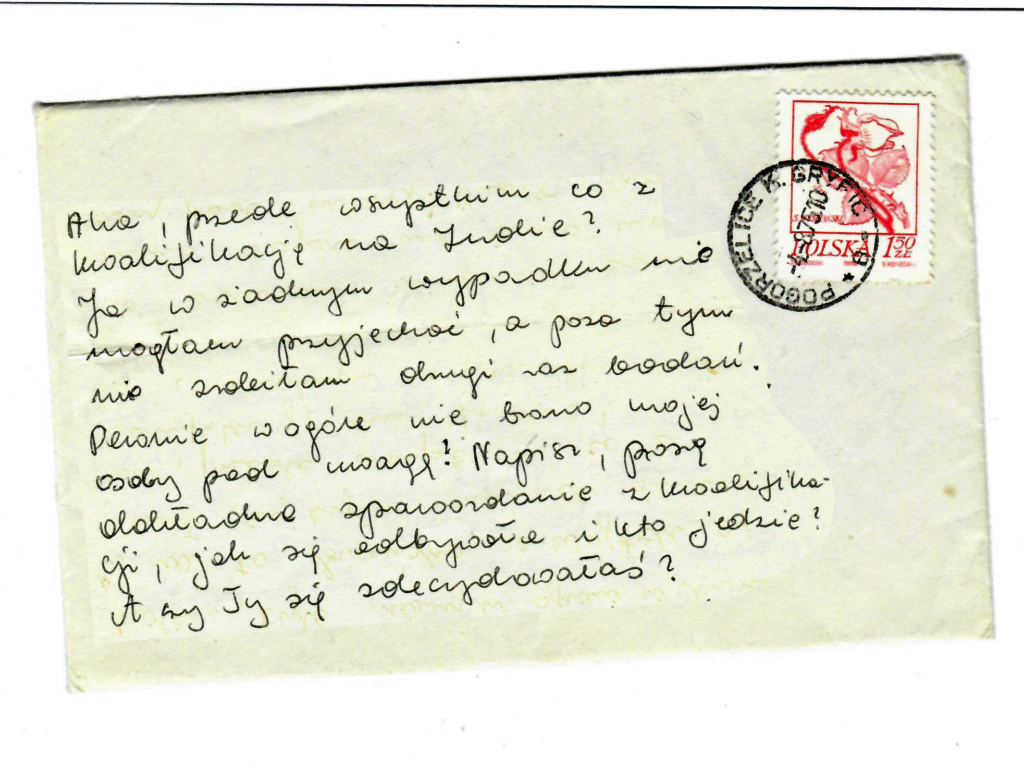 Aha, przede wszystkim co z
kwalifikacją na Indie?
Ja w żadnym wypadku nie
mogłam przyjechać, a poza tym
nie zrobiłam drugi raz badań.
Pewnie w ogóle nie brano mojej
osoby pod uwagę? Napisz, proszę
dokładne sprawozdanie z kwalifika-
cji, jak się odbywała i kto jedzie?
A czy Ty się zdecydowałaś?
POGORZELICE K. GRYFIC
POLSKA 1 50 ZŁ